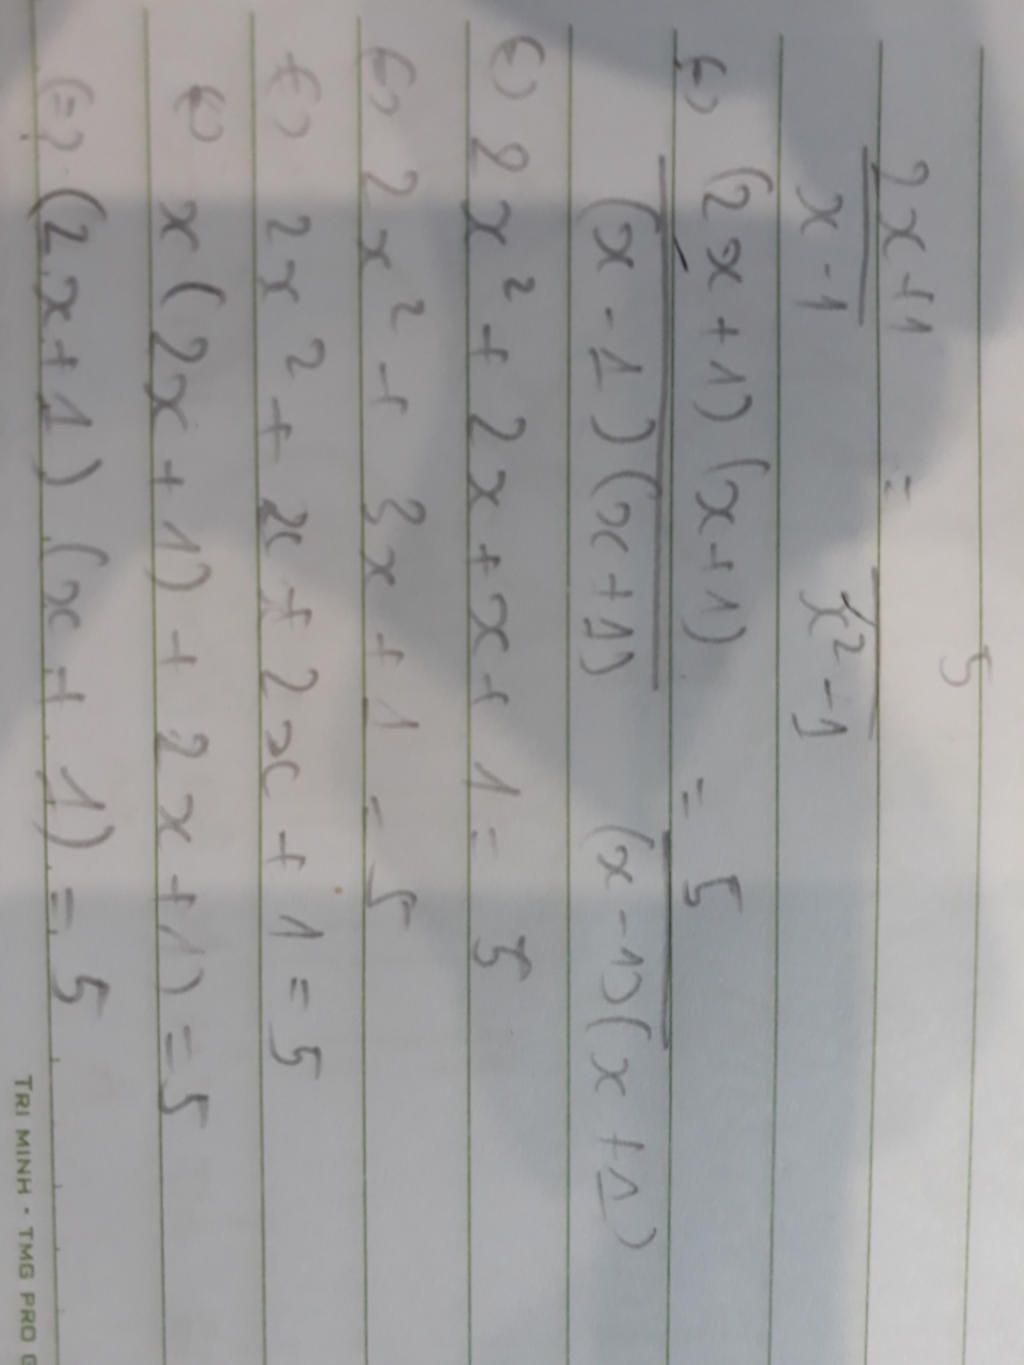 2x+1 / x-1 = 5 / x²-1
<=> (2x+1)(x+1) / (x-1)(x+1) = 5 / (x-1)(x+1)
<=> 2x² + 2x + x + 1 = 5
<=> 2x² + 3x + 1 = 5
<=> 2x² + x + 2x + 1 = 5
<=> x(2x+1) + 2x+1) = 5
<=> (2x+1) (x+1) = 5
TRI MINH • TMG PRO